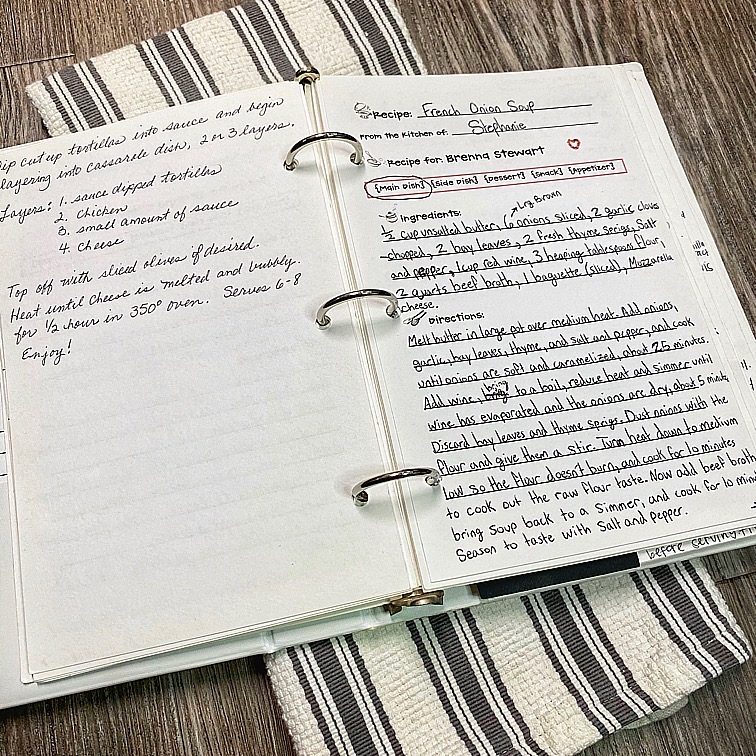 Dip cut up tortillas into sauce and begin
layering into cassarole dish, 2 or 3 layers.
Layers: 1. sauce dipped tortillas
2. Chicken
3. small amount of sauce
4. Cheese
Top off with sliced olives if desired.
Heat until cheese is melted and bubbly.
for 1/2 hour in 350° oven. Serves 6-8
Enjoy!
Recipe: French Onion Soup
From the Kitchen of: Stephanie
Recipe for: Brenna Stewart
{Main Dish} {Side Dish} {Dessert} {Snack} {Appetizer}
Lrg Brown
Ingredients:
1/2 cup unsalted butter, 6 onions sliced, 2 garlic cloves
chopped, 2 bay leaves, 2 fresh thyme sprigs, Salt
and pepper, 1 cup red wine, 3 heaping tablespoon flour,
2 quarts beef broth, 1 baguette (sliced), Mozzarella
cheese.
Directions:
Melt butter in large pot over medium heat. Add onions,
garlic, bay leaves, thyme, and salt and pepper, and cook
until onions are soft and caramelized, about 25 minutes.
Add wine, bring to a boil, reduce heat and simmer until
wine has evaporated and the onions are dry, about 5 minute
Discard bay leaves and thyme sprigs. Dust onions with the
flour and give them a stir. Turn heat down to medium
low so the flour doesn't burn, and cook for 10 minutes
to cook out the raw flour taste. Now add beef broth
bring soup back to a simmer, and cook for 10 minu
Season to taste with salt and pepper.
before serving